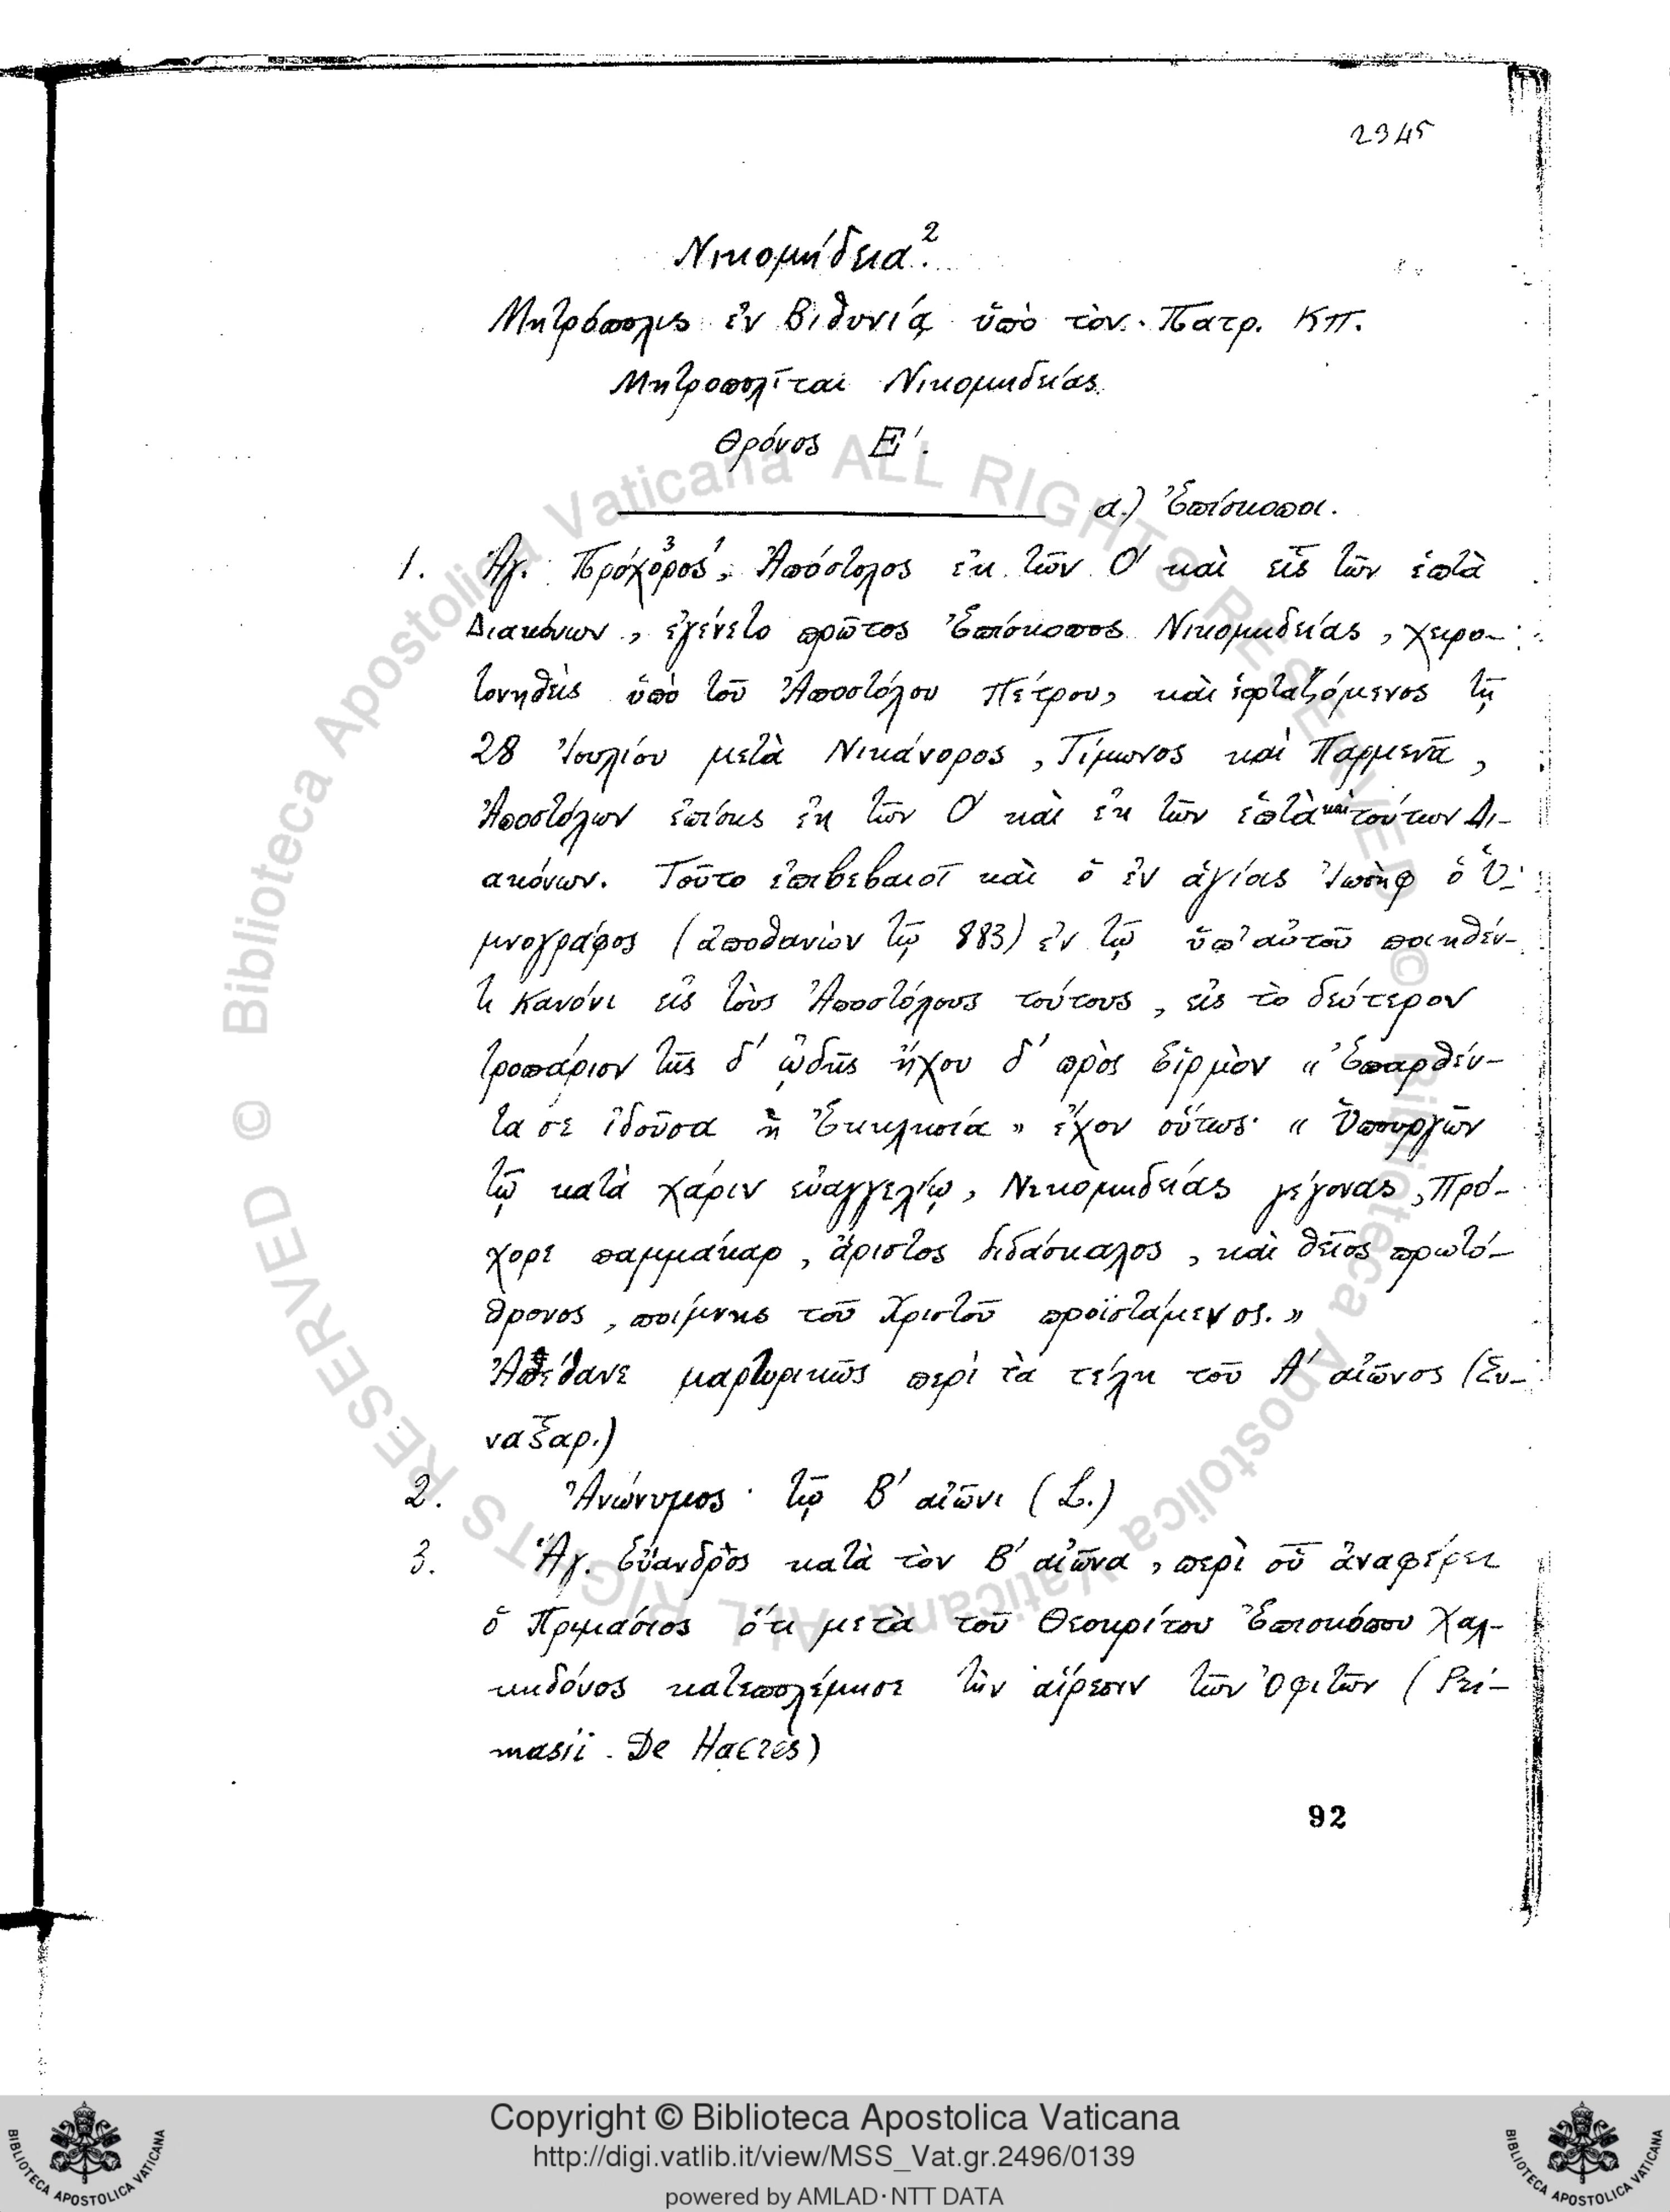 2345
Νικομήδεια.²
Μητρόπολις ἐν Βιθυνίᾳ ὑπὸ τὸν Πατρ. ΚΠ.
Μητροπολῖται Νικομηδείας
Θρόνος Ε΄.
α.) Ἐπίσκοποι.
1. Ἅγ. Πρόχορος, Ἀπόστολος ἐκ τῶν Ο΄ καὶ εἷς τῶν ἑπτὰ
Διακόνων, ἐγένετο πρῶτος Ἐπίσκοπος Νικομηδείας, χειρο-
τονηθεὶς ὑπὸ τοῦ Ἀποστόλου Πέτρου, καὶ ἑορταζόμενος τῇ
28 Ἰουλίου μετὰ Νικάνορος, Τίμωνος καὶ Παρμενᾶ,
Ἀποστόλων ἐπίσης ἐκ τῶν Ο΄ καὶ ἐκ τῶν ἑπτὰ καὶ τούτων Δι-
ακόνων. Τοῦτο ἐπιβεβαιοῖ καὶ ὁ ἐν ἁγίοις Ἰωσὴφ ὁ Ὑ-
μνογράφος (ἀποθανὼν τῷ 883) ἐν τῷ ὑπ' αὐτοῦ ποιηθέν-
τι Κανόνι εἰς τοὺς Ἀποστόλους τούτους, εἰς τὸ δεύτερον
τροπάριον τῆς δ΄ ᾠδῆς ἤχου δ΄ πρὸς εἱρμὸν «Ἐπαρθέν-
τα σε ἰδοῦσα ἡ Ἐκκλησία» ἔχον οὕτως· «Ὑπουργῶν
τῷ κατὰ χάριν εὐαγγελίῳ, Νικομηδείας γέγονας, Πρό-
χορε παμμάκαρ, ἄριστος διδάσκαλος, καὶ θεῖος πρωτό-
θρονος, ποίμνης τοῦ Χριστοῦ προϊστάμενος.»
Ἀπέθανε μαρτυρικῶς περὶ τὰ τέλη τοῦ Α΄ αἰῶνος (Συ-
ναξαρ.)
2. Ἀνώνυμος· τῷ Β΄ αἰῶνι (L.)
3. Ἅγ. Εὔανδρος κατὰ τὸν Β΄ αἰῶνα, περὶ οὗ ἀναφέρει
ὁ Πριμάσιος ὅτι μετὰ τοῦ Θεοκρίτου Ἐπισκόπου Χαλ-
κηδόνος κατεπολέμησε τὴν αἵρεσιν τῶν Ὀφιτῶν (Pri-
masii. De Haeres)
92
© Biblioteca Apostolica Vaticana ALL RIGHTS RESERVED © Biblioteca Apostolica Vaticana ALL RIGHTS RESERVED
Copyright © Biblioteca Apostolica Vaticana
http://digi.vatlib.it/view/MSS_Vat.gr.2496/0139
powered by AMLAD·NTT DATA
BIBLIOTECA APOSTOLICA VATICANA
BIBLIOTECA APOSTOLICA VATICANA